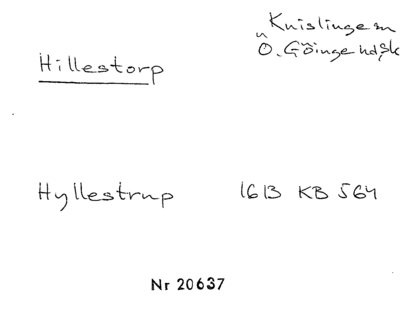 Knislinge sn
Ö. Göinge hd, Sk
Hillestorp
Hyllestrup 1613 KB 564
Nr 20637